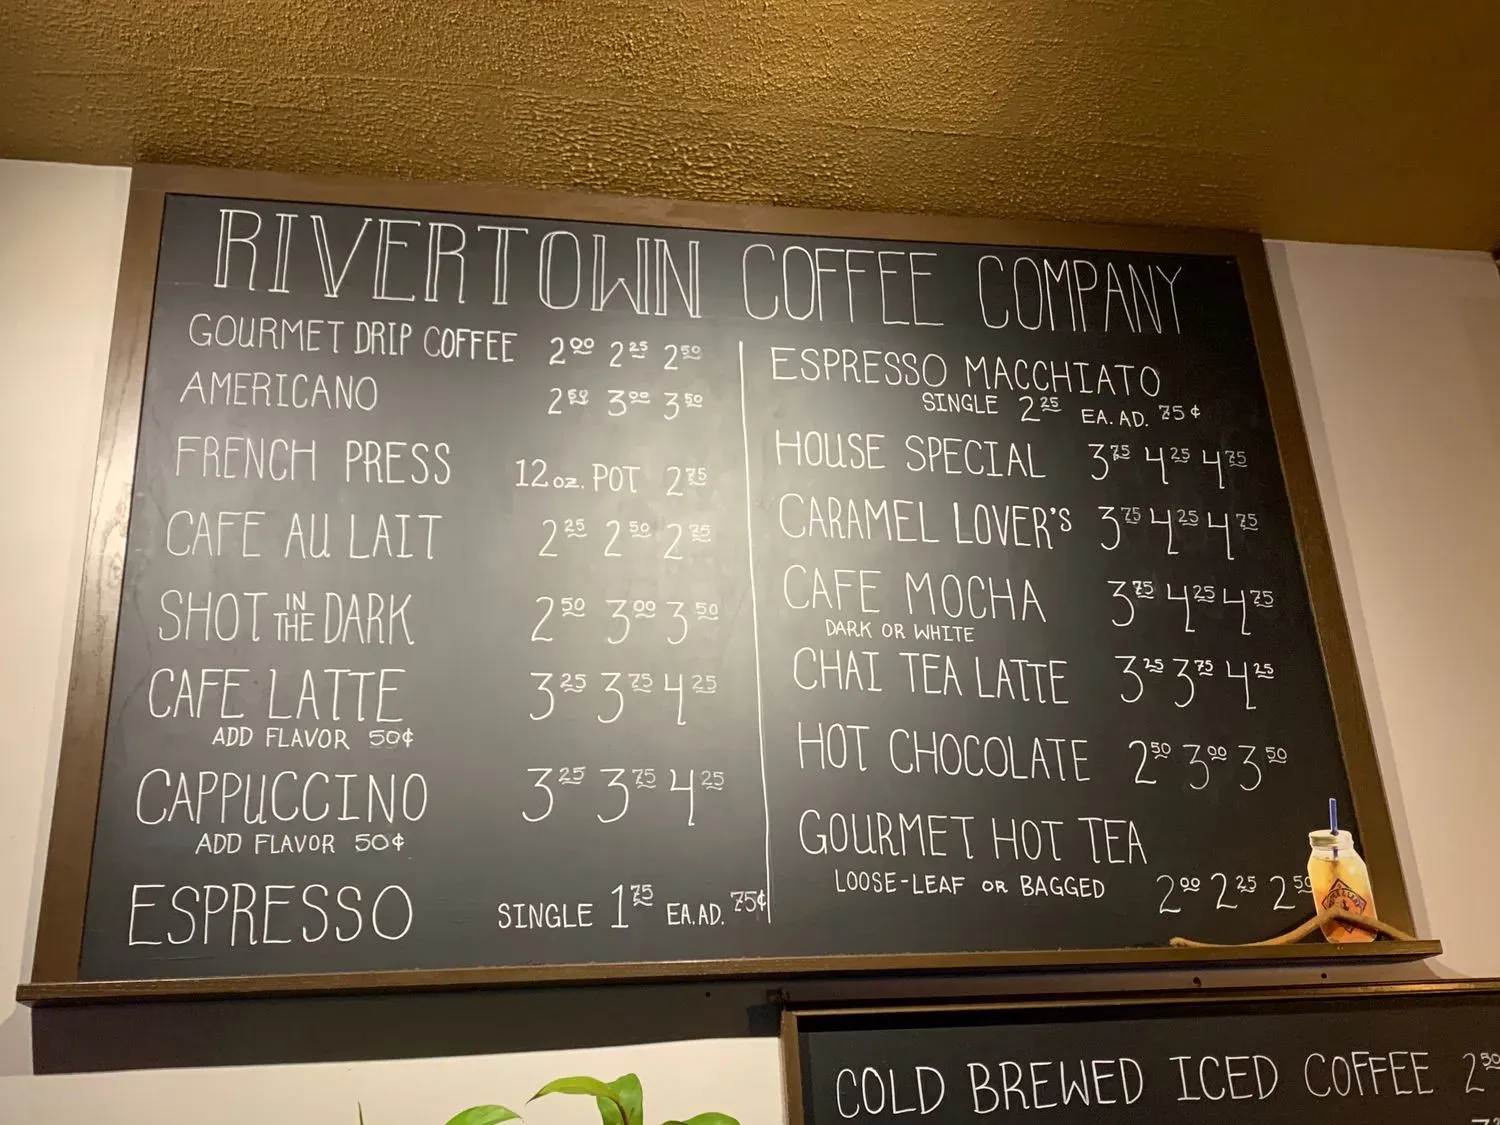 RIVERTOWN COFFEE COMPANY
GOURMET DRIP COFFEE 2.00 2.25 2.50
AMERICANO 2.50 3.00 3.50
FRENCH PRESS 12 oz. POT 2.75
CAFE AU LAIT 2.25 2.50 2.75
SHOT IN THE DARK 2.50 3.00 3.50
CAFE LATTE 3.25 3.75 4.25
ADD FLAVOR 50¢
CAPPUCCINO 3.25 3.75 4.25
ADD FLAVOR 50¢
ESPRESSO SINGLE 1.75 EA. AD. 75¢
ESPRESSO MACCHIATO
SINGLE 2.25 EA. AD. 75¢
HOUSE SPECIAL 3.75 4.25 4.75
CARAMEL LOVER'S 3.75 4.25 4.75
CAFE MOCHA 3.75 4.25 4.75
DARK OR WHITE
CHAI TEA LATTE 3.25 3.75 4.25
HOT CHOCOLATE 2.50 3.00 3.50
GOURMET HOT TEA
LOOSE-LEAF OR BAGGED 2.00 2.25 2.50
COLD BREWED ICED COFFEE 2.50